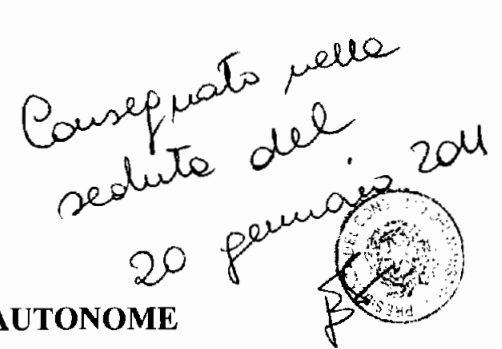 Consegnato nella
seduta del
20 gennaio 2011
AUTONOME